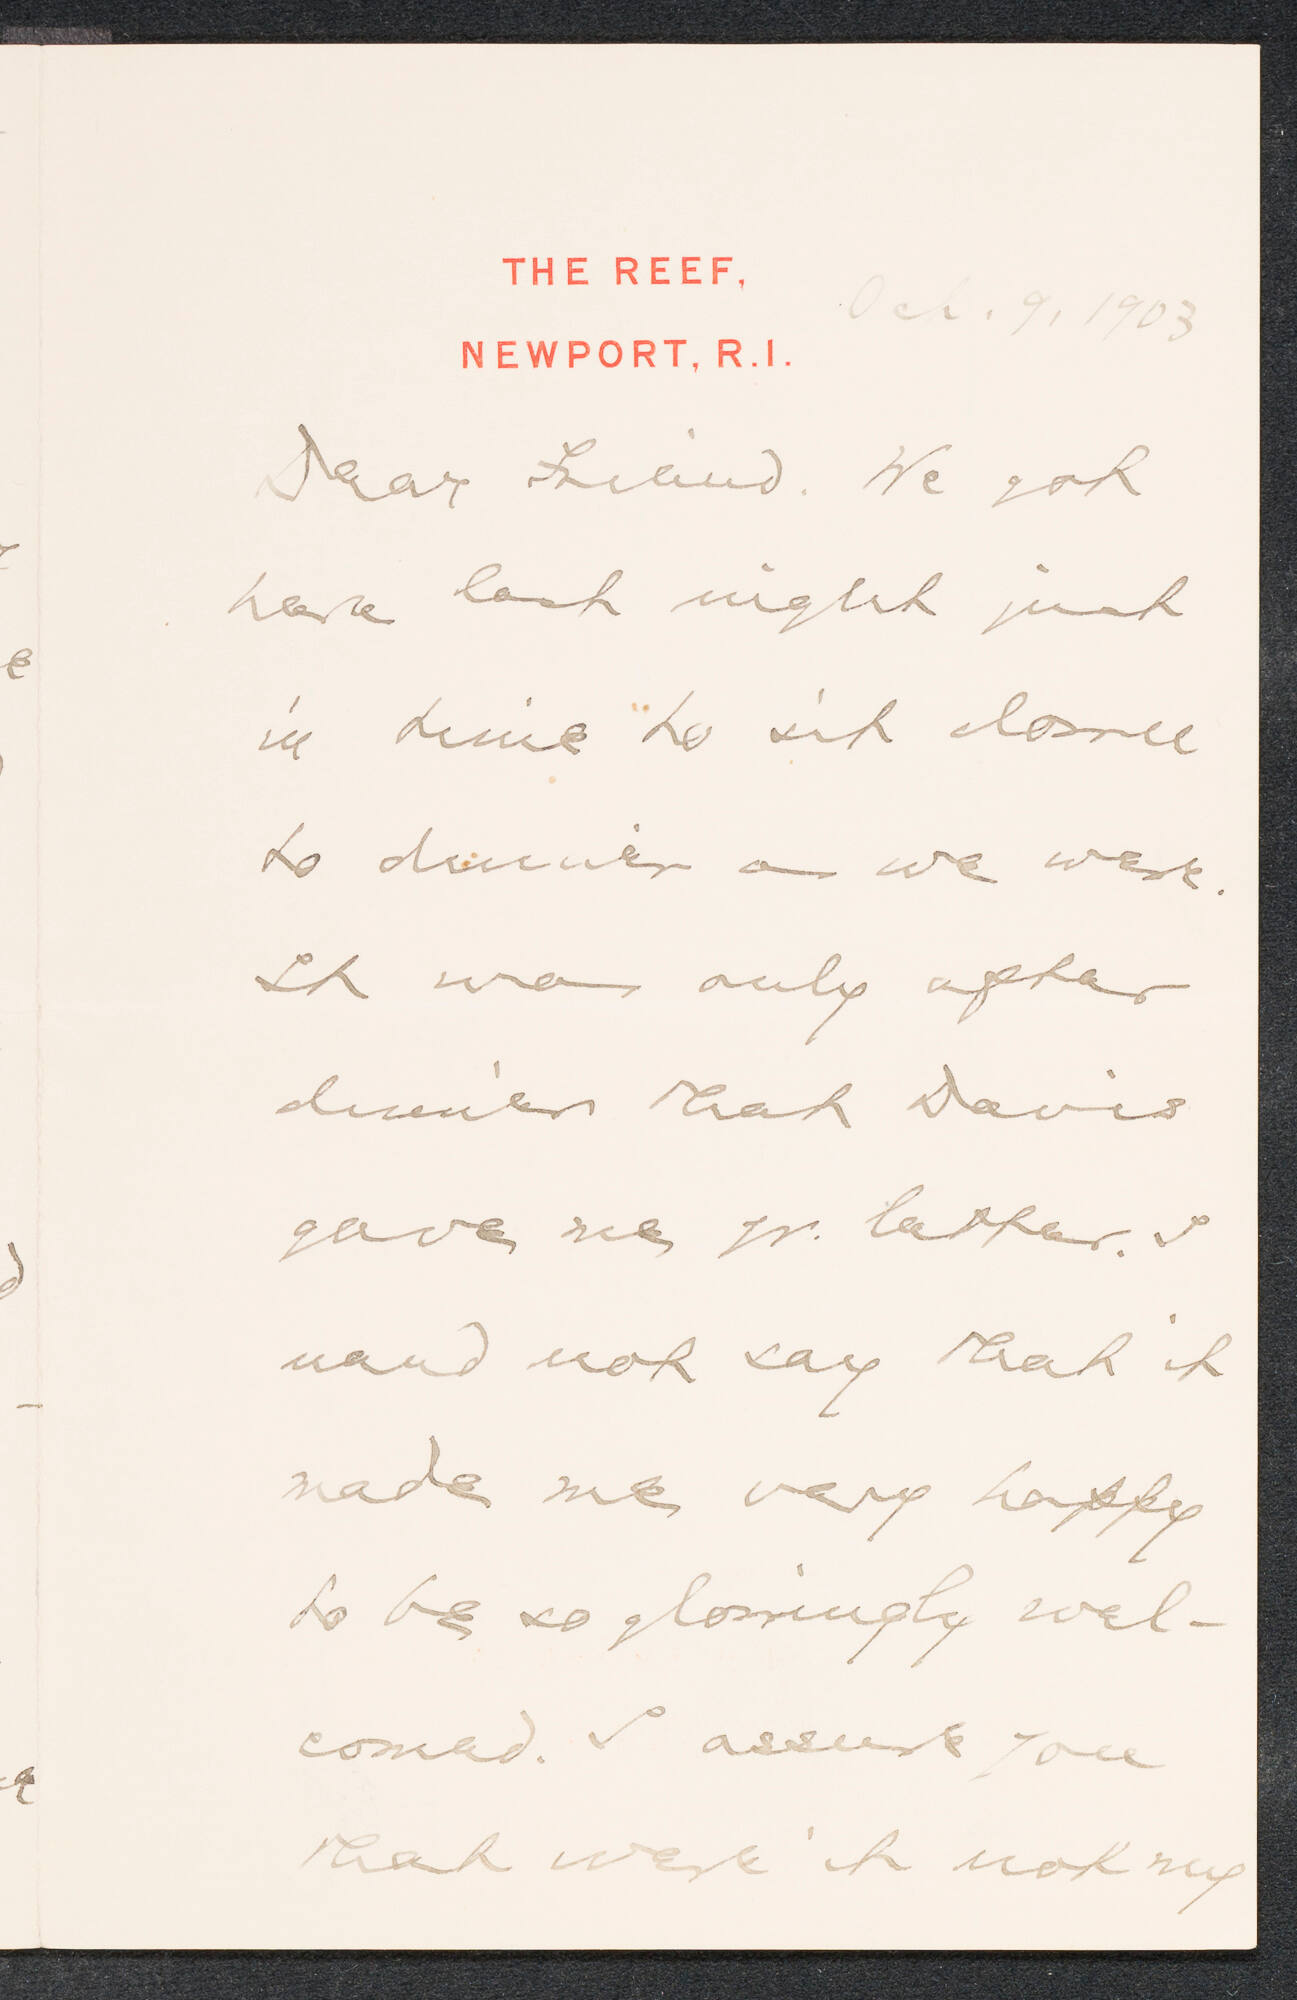 THE REEF,
Oct. 9, 1903
NEWPORT, R.I.
Dear Friend. We got
here last night just
in time to sit down
to dinner as we were.
It was only after
dinner that Davis
gave me yr. letter. I
need not say that it
made me very happy
to be so glowingly wel-
comed. I assure you
that were it not my